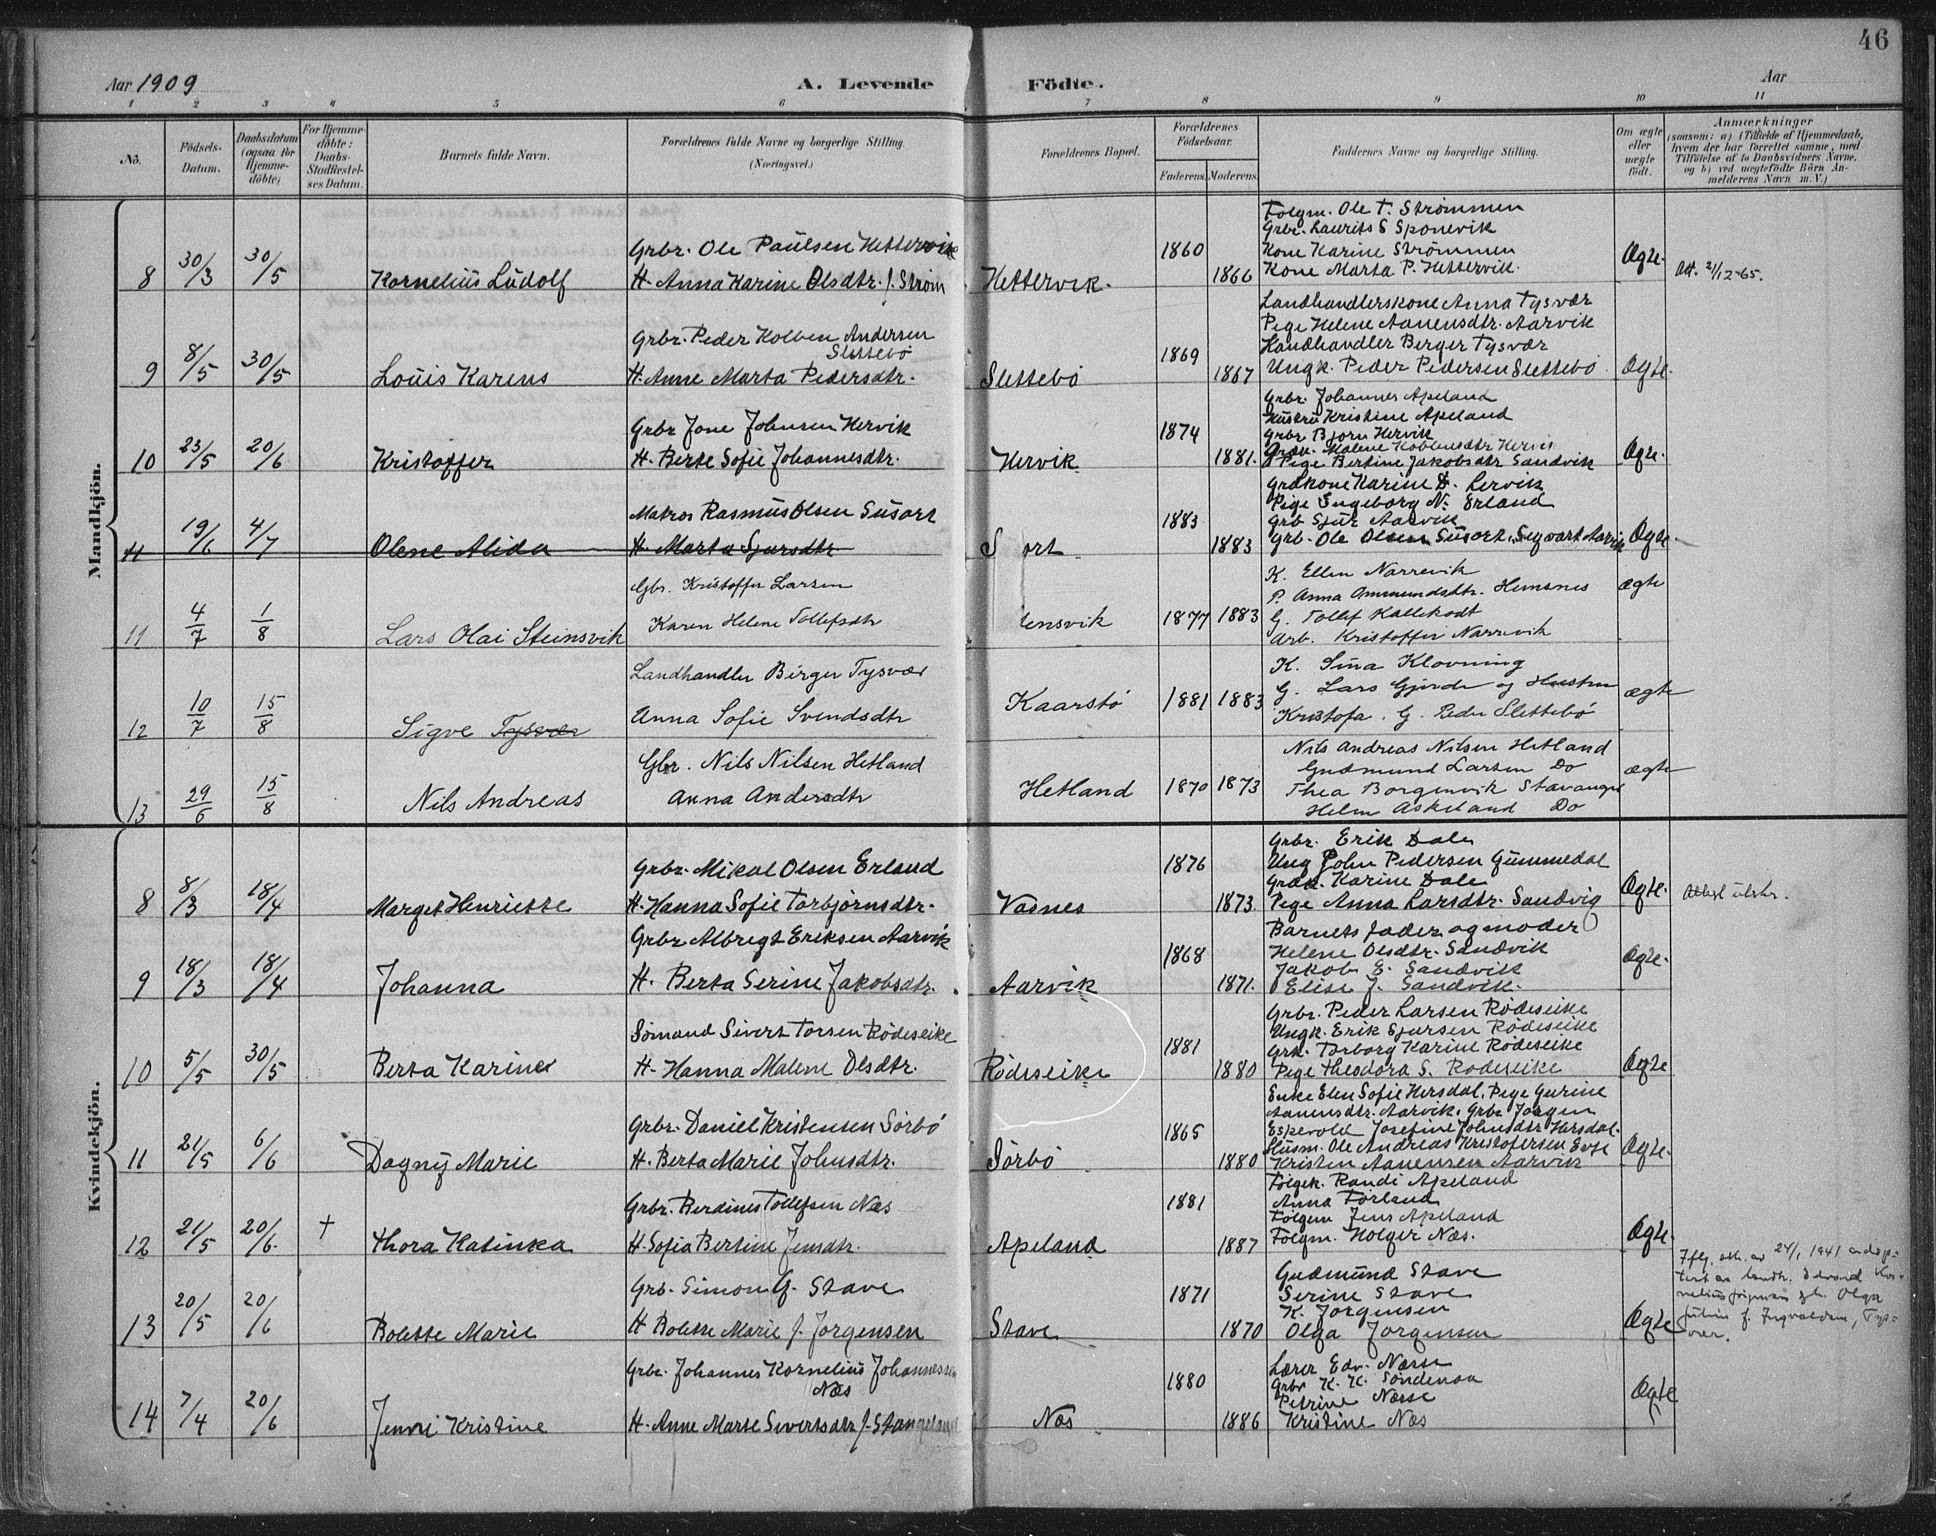 46
Aar 1909 A. Levende Födte. Aar
1 2 3 4 5 6 7 8 9 10 11
No.
Födsels-Datum.
Daabsdatum (ogsaa for Hjemme-döbte)
For Hjemme-döbte: Daabs-Stadfæstel-ses Datum.
Barnets fulde Navn.
Forældrenes fulde Navne og borgerlige Stilling.
(Næringsvei.)
Forældrenes Bopæl.
Forældrenes Födselsaar.
Faderens. Moderens.
Faddernes Navne og borgerlige Stilling.
Om ægte eller uægte födt.
Anmærkninger
(saasom: a) i Tilfælde af Hjemmedaab,
hvem der har forrettet samme, med
Tilföielse af to Daabsvidners Navne,
og b) ved uægtefödte Börn An-
melderens Navn m. V.)
Mandkjön.
8 30/3 30/5 Kornelius Ludolf
Grbr. Ole Paulsen Hettervik
H. Anna Karine Olsdtr. f. Strøm
Hettervik.
1860 1866
Folgm. Ole T. Strømmen
Grbr. Laurits S Sponevik
Kone Karine Strømmen
Kone Marta P. Hettervik.
Ægte.
Att. 2/12-65.
9 8/5 30/5 Louis Karens
Grbr. Peder Kolben Andersen
Slettebö
H. Anne Marta Pedersdtr.
Slettebö
1869 1867
Landhandlerskone Anna Tysvær
Pige Helene Aanensdtr. Aarvik
Landhandler Berger Tysvær
Ungk. Peder Pedersen Slettebö
Ægte.
10 23/5 20/6 Kristoffer
Grbr Jone Johnsen Hervik
H. Berte Sofie Johannesdtr.
Hervik
1874 1881.
Grbr. Johannes Apeland
Hustru Kristine Apeland
Grbr Bjorn Hervik
Malene Kobbensdtr Hervik
Pige Bertine Jakobsdtr Sandvik
Ægte.
11 19/6 4/7 Olene Alida
Matros Rasmus Olsen Susort
H. Marta Sjursdtr
S ort
1883 1883
Grdkone Karine D. Lervik
Pige Ingeborg N. Erland
Grb Sjur Aarvik
Grb. Ole Olsen Susort. Sigvart Aarvik
Ægte.
11 4/7 1/8 Lars Olai Steinsvik
Gbr. Kristoffer Larsen
Karen Helene Tollefsdtr
ensvik
1877 1883
K. Ellen Narrevik
P. Anna Ommundsdtr. Hemsnes
G. Tollef Kallekodt
Arb. Kristoffer Narrevik
ægte
12 10/7 15/8 Sigve Tysvær
Landhandler Birger Tysvær
Anna Sofie Svendsdtr
Kaarstø
1881 1883
K. Sina Klovning
G. Lars Gjerde og Hustru
Kristofa. G. Peder Slettebö
ægte
13 29/6 15/8 Nils Andreas
Gbr. Nils Nilsen Hetland
Anna Andersdtr
Hetland
1870 1873
Nils Andreas Nilsen Hetland
Gudmund Larsen Do
Thea Borgenvik Stavanger
Helen Askeland Do
ægte
Kvindekjön.
8 8/3 18/4 Marget Henriette
Grbr. Mikal Olsen Erland
H. Hanna Sofie Torbjørnsdtr.
Vasnes
1876 1873
Grbr. Erik Dale
Ung John Pedersen Gummedal
Grdk. Karine Dale
Pige Anna Larsdtr. Sandvig
Ægte.
Attest utstr.
9 18/3 18/4 Johanna
Grbr Albregt Eriksen Aarvik
H. Berta Serine Jakobsdtr.
Aarvik
1868 1871.
Barnets fader og moder
Helene Olsdtr. Sandvik
Jakob E. Sandvik
Elise J. Sandvik.
Ægte.
10 5/5 30/5 Berta Karine
Sømand Sivert Torsen Rödeseike
H. Hanna Malene Olsdtr.
Rödeseike
1881 1880
Grbr. Peder Larsen Rödeseike
Ungk. Erik Sjursen Rödeseike
Grk. Torborg Karine Rödeseike
Pige Theodora S. Rödeseike
Ægte
11 21/5 6/6 Dagny Marie
Grbr. Daniel Kristensen Sörbö
H. Berta Marie Johnsdtr.
Sörbö
1865 1880
Enke Elen Sofie Hersdal, Pige Gurine
Aanensdtr. Aarvik, Grbr Jorgen
Espevold Josefine Johnsdtr Hersdal.
Husm. Ole Andreas Kristofersen Evje
Kristen Aanensen Aarvik
Ægte.
12 21/5 20/6. † Thora Katinka
Grbr. Berdines Tollefsen Næs
H. Sofia Bertine Jensdtr.
Apeland
1881 1887
Følgek. Randi Apeland
Anna Førland
Følgem Jens Apeland
Følgm. Holger Næs.
Ægte.
13 20/5 20/6 Bolette Marie
Grb. Simon G. Stave
H Bolette Marie f. Jorgensen
Stave
1871 1870
Gudmund Stave
Serine Stave
K. Jorgensen
Olga Jorgensen
Ægte
Iflg. att. av 24/1 1941 adop-
tert av landh. Edvard Kor-
Olga
f. Ingvaldsen, Tys-
vær.
14 7/4 20/6 Jenni Kristine
Grbr. Johannes Kornelius Johannessen
Næs
H. Anne Marte Sivertsdtr f. Stangeland
Næs
1880 1886
Lærer Edv. Næsse
Grbr K. K. Søndenaa
Petrine Næsse
Kristine Næs
Ægte